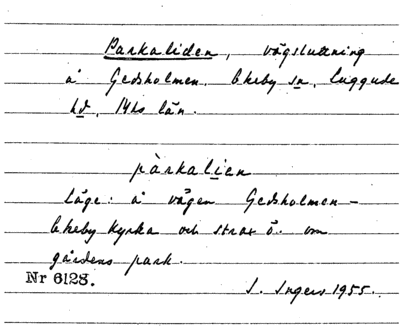 Parkaliden, vägsluttning
å Gedsholmen. Ekeby sn, Luggude
hd, M-hs län.
pàrkalien
Läge: å vägen Gedsholmen –
Ekeby kyrka och strax ö. om
gårdens park.
Nr 6128.
I. Ingers 1955.